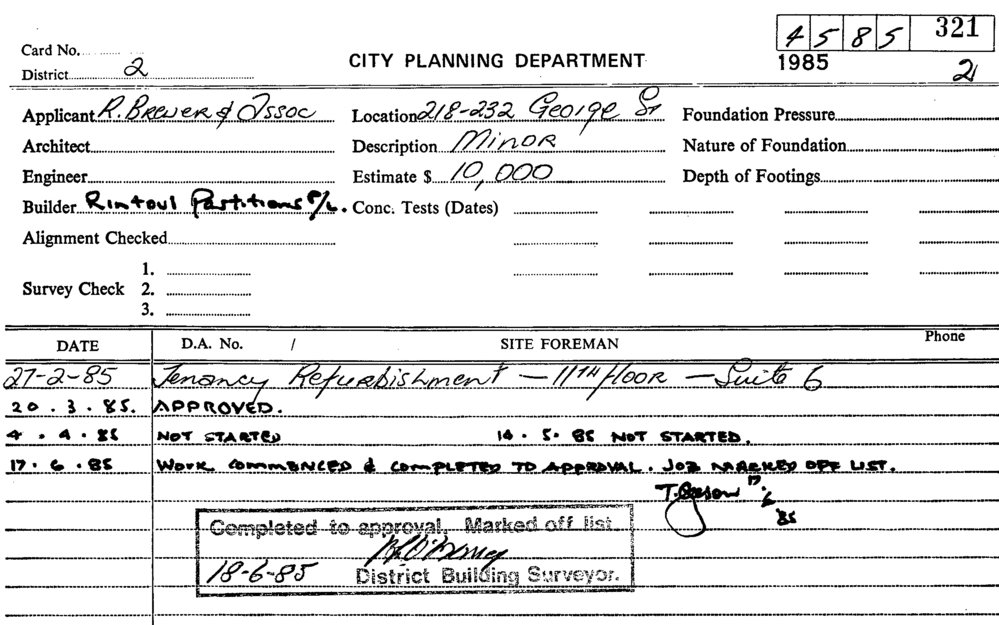 4 5 8 5 321
Card No.
CITY PLANNING DEPARTMENT
1985
District 2
2
Applicant R. Brewer & Assoc
Location 218-232 George St
Foundation Pressure
Architect
Description Minor
Nature of Foundation
Engineer
Estimate $ 10,000
Depth of Footings
Builder Rintoul Partitions P/L.
Conc. Tests (Dates)
Alignment Checked
1.
Survey Check 2.
3.
DATE D.A. No. / SITE FOREMAN Phone
27-2-85 Tenancy Refurbishment — 11TH floor — Suite 6
20 . 3 . 85. APPROVED.
4 . 4 . 85 NOT STARTED 14 . 5 . 85 NOT STARTED.
17 . 6 . 85 WORK COMMENCED & COMPLETED TO APPROVAL. JOB MARKED OFF LIST.
17.
6
'85
Completed to approval. Marked off list.
18-6-85 District Building Surveyor.